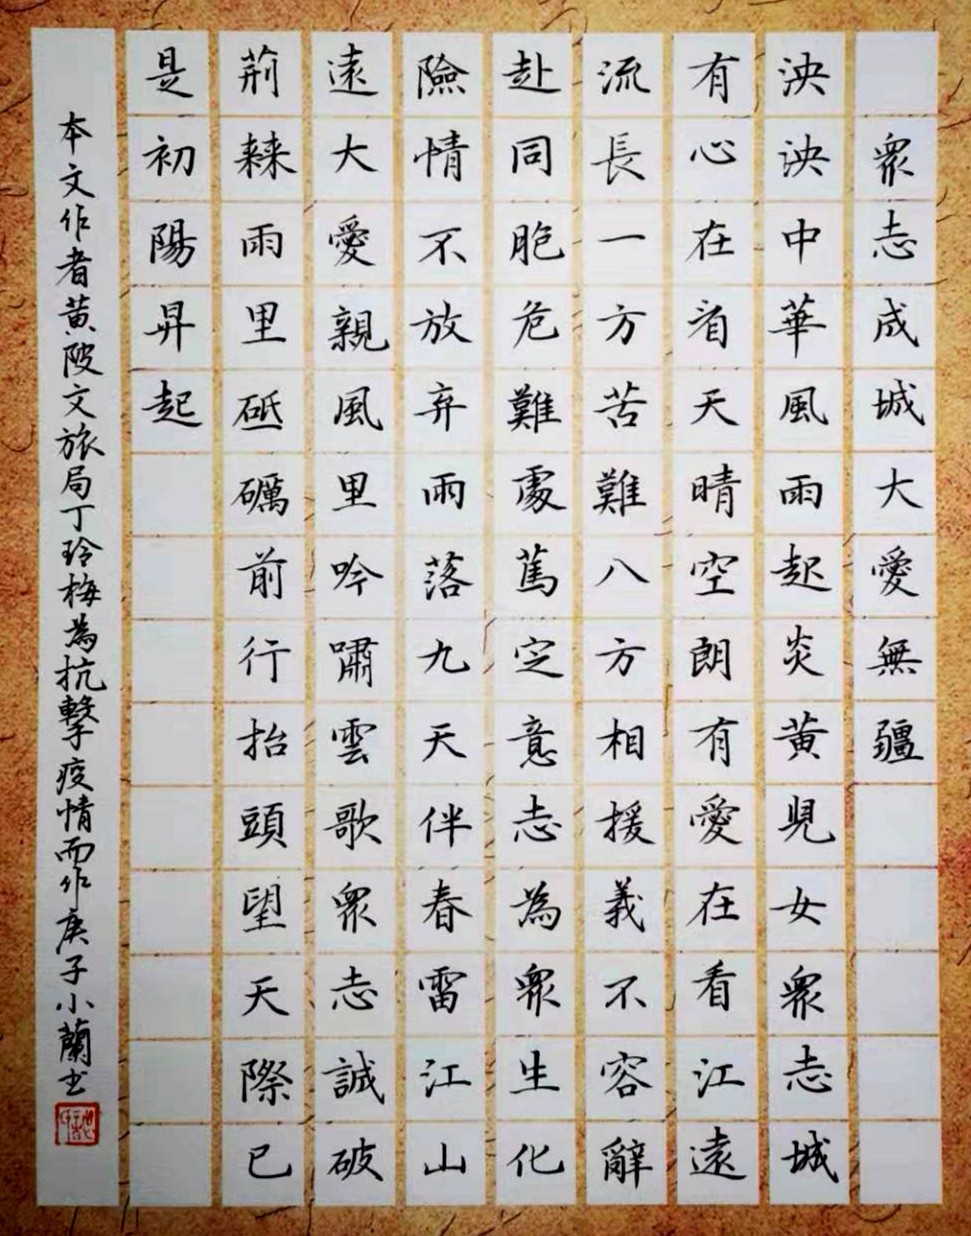 衆志成城大愛無疆
泱泱中華風雨起炎黃兒女衆志城
有心在看天晴空朗有愛在看江遠
流長一方苦難八方相援義不容辭
赴同胞危難處篤定意志為衆生化
險情不放弃雨落九天伴春雷江山
遠大愛親風里吟嘯雲歌衆志誠破
荊棘雨里砥礪前行抬頭望天際已
是初陽昇起
本文作者黃陂文旅局丁玲梅為抗擊疫情而作庚子小蘭书